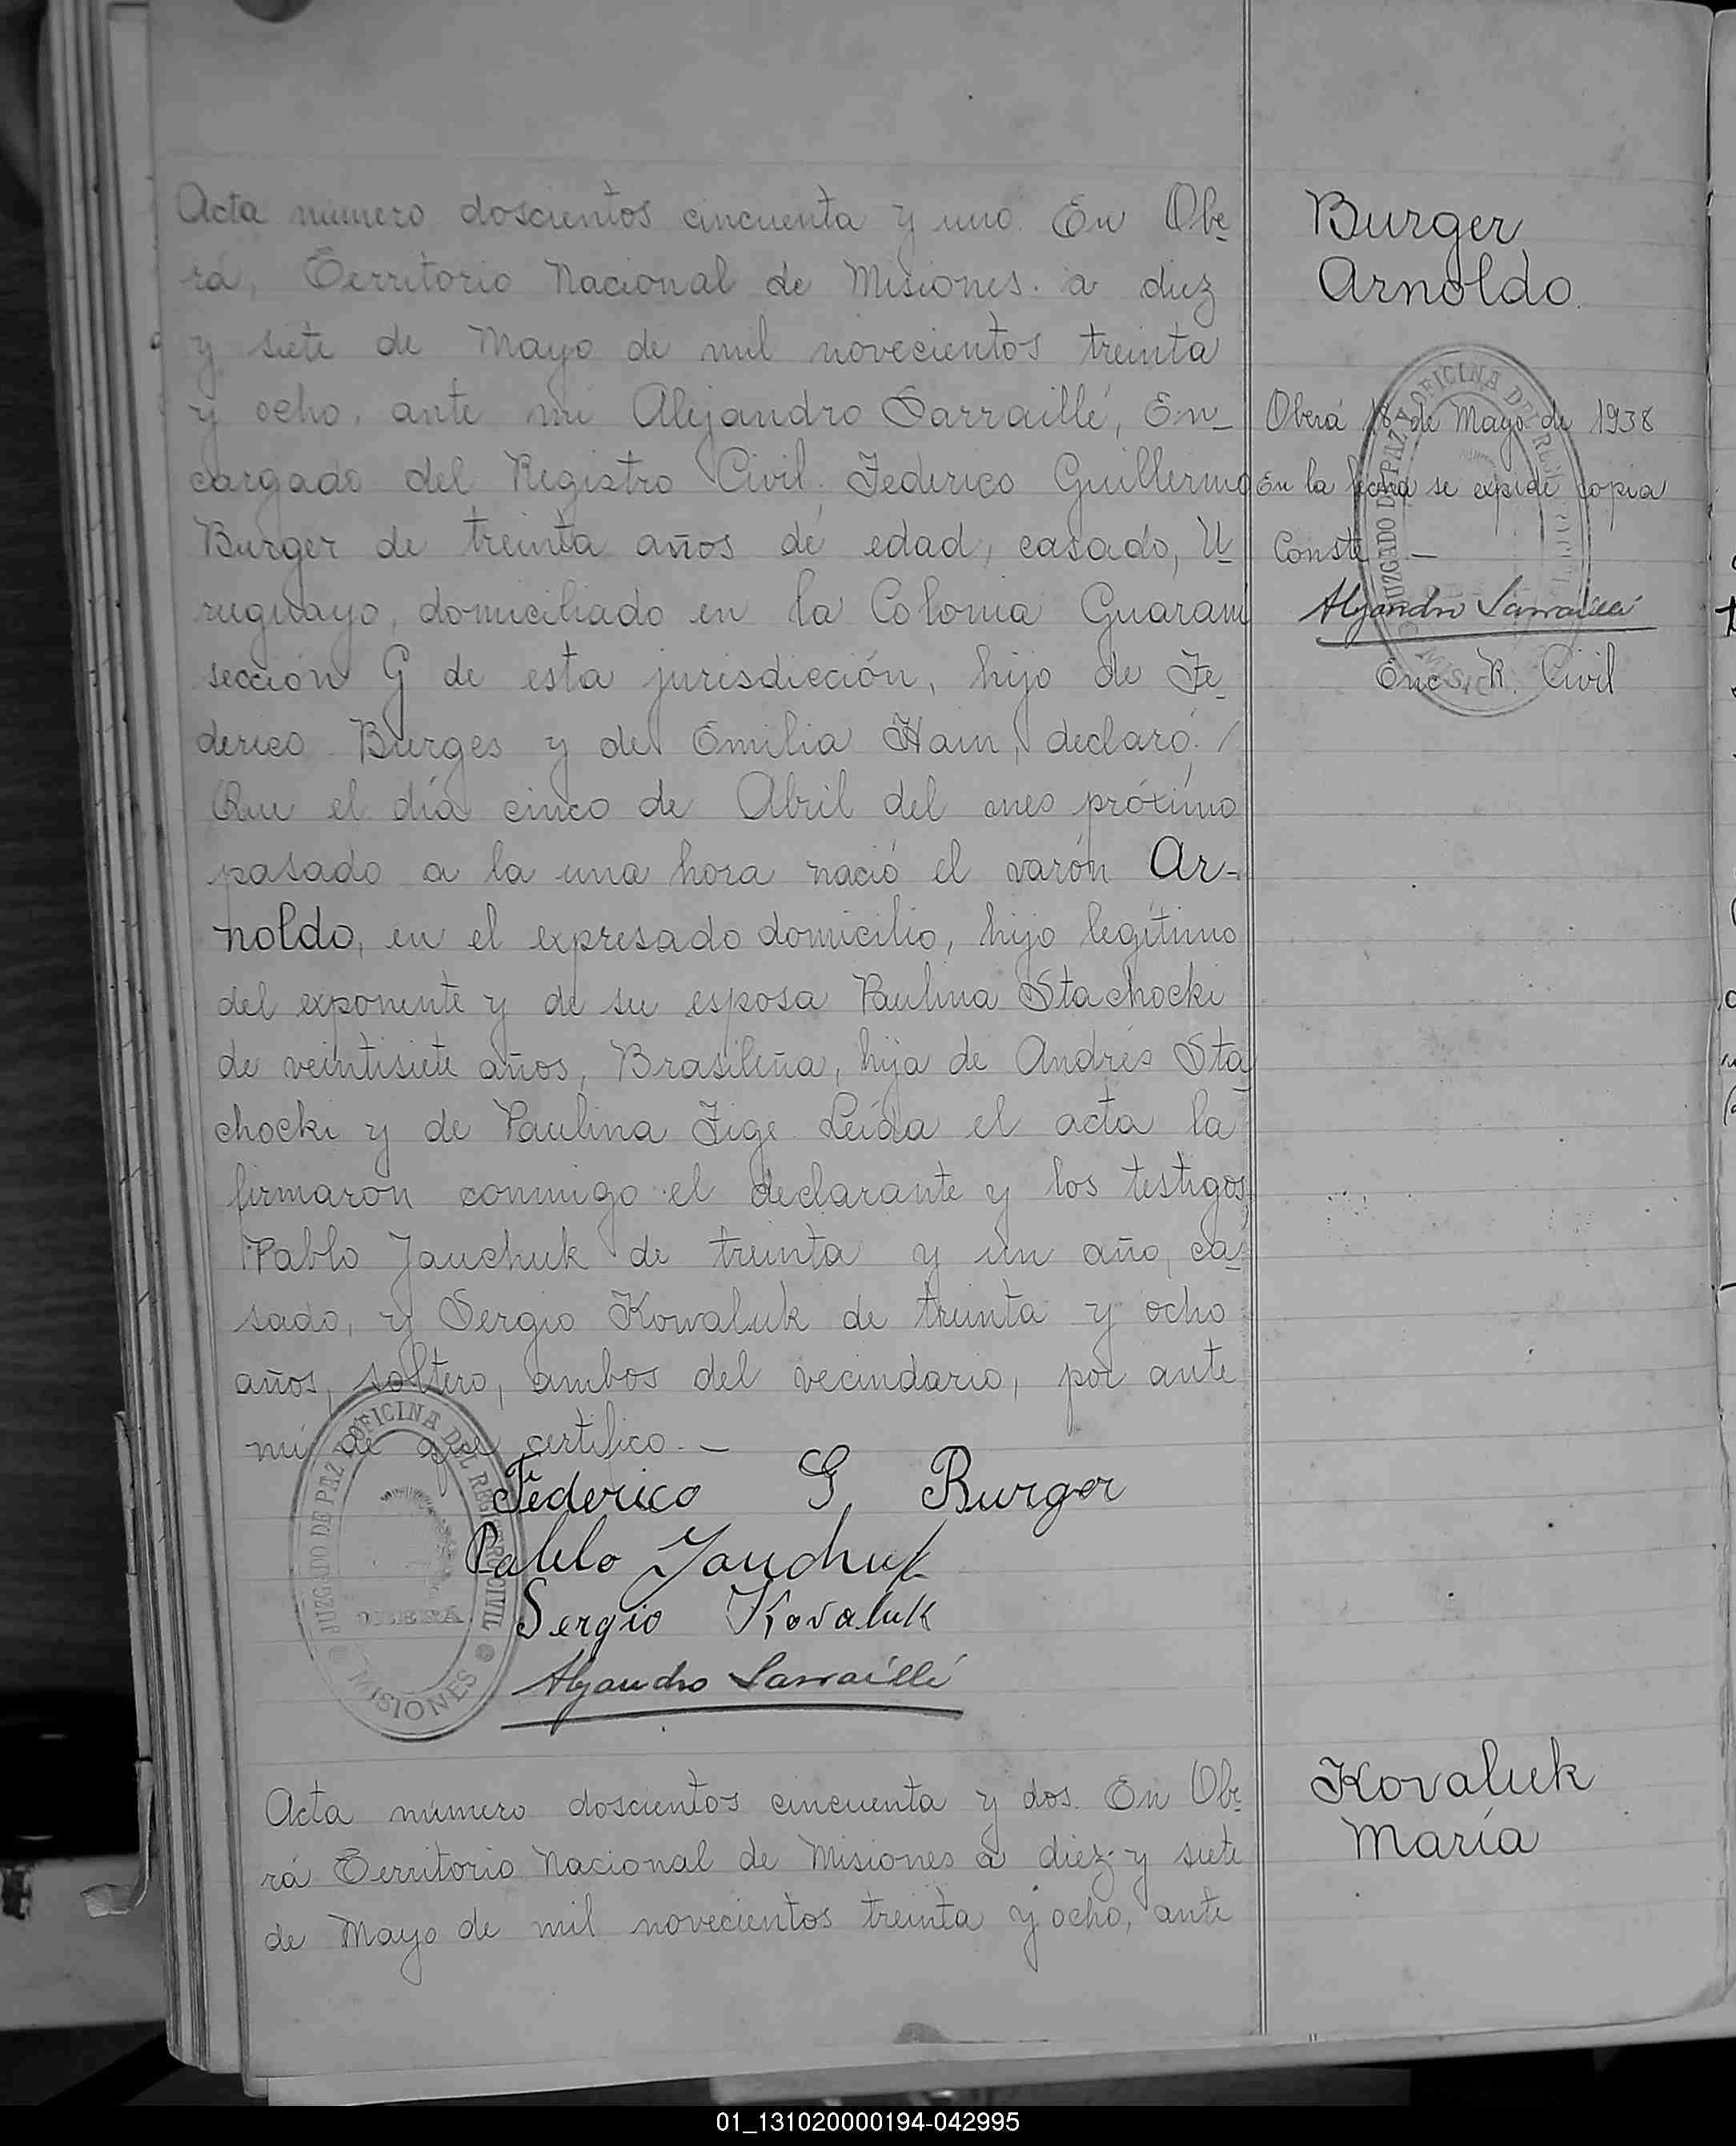 Acta número doscientos cincuenta y uno. En Obe-
rá, Territorio Nacional de Misiones. a diez
y siete de Mayo de mil novecientos treinta
y ocho, ante mi Alejandro Sarraillé, En-
cargado del Registro Civil. Federico Guillermo
Burger de treinta años de edad, casado, U-
ruguayo, domiciliado en la Colonia Guaraní
sección G de esta jurisdicción, hijo de Fe-
derico Burges y de Emilia Ham, declaró: /
Que el día cinco de Abril del mes próximo
pasado a la una hora nació el varón Ar-
noldo, en el expresado domicilio, hijo legítimo
del exponente y de su esposa Paulina Stachocki
de veintisiete años, Brasileña, hija de Andrés Sta-
chocki y de Paulina Fige. Leída el acta la
firmaron conmigo el declarante y los testigos,
Pablo Jauchuk de treinta y un año, ca-
sado, y Sergio Kowaluk de treinta y ocho
años, soltero, ambos del vecindario, por ante
mi de que certifico. —
Federico G. Burger
Pablo Jauchuk
Sergio Kovaluk
Alejandro Sarraillé
JUZGADO DE PAZ Y OFICINA DEL REGISTRO CIVIL
OBERÁ
MISIONES
Burger
Arnoldo.
Oberá 18 de Mayo de 1938
En la fecha se expide copia
Conste —
Alejandro Sarraillé
Enc. R. Civil
JUZGADO DE PAZ Y OFICINA DEL
Acta número doscientos cincuenta y dos. En Obe-
rá Territorio Nacional de Misiones a diez y siete
de Mayo de mil novecientos treinta y ocho, ante
Kovaluk
María
01_131020000194-042995